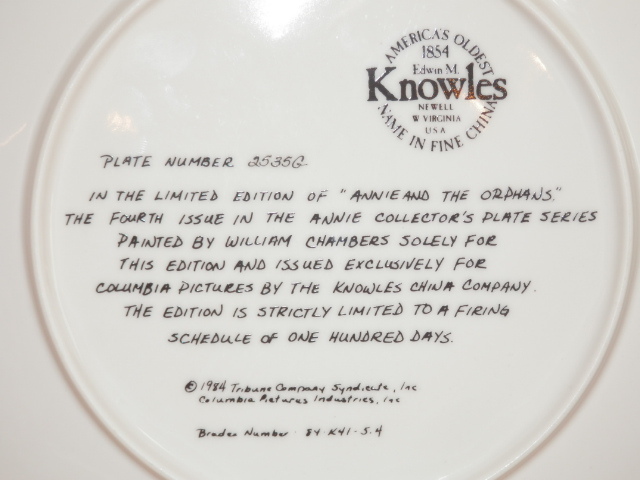 AMERICA'S OLDEST
1854
Edwin M.
Knowles
NEWELL
W VIRGINIA
USA
NAME IN FINE CHINA
PLATE NUMBER 2535G
IN THE LIMITED EDITION OF "ANNIE AND THE ORPHANS,"
THE FOURTH ISSUE IN THE ANNIE COLLECTOR'S PLATE SERIES
PAINTED BY WILLIAM CHAMBERS SOLELY FOR
THIS EDITION AND ISSUED EXCLUSIVELY FOR
COLUMBIA PICTURES BY THE KNOWLES CHINA COMPANY.
THE EDITION IS STRICTLY LIMITED TO A FIRING
SCHEDULE OF ONE HUNDRED DAYS.
© 1984 Tribune Company Syndicate, Inc
Columbia Pictures Industries, Inc
Bradex Number 84-K41-5.4